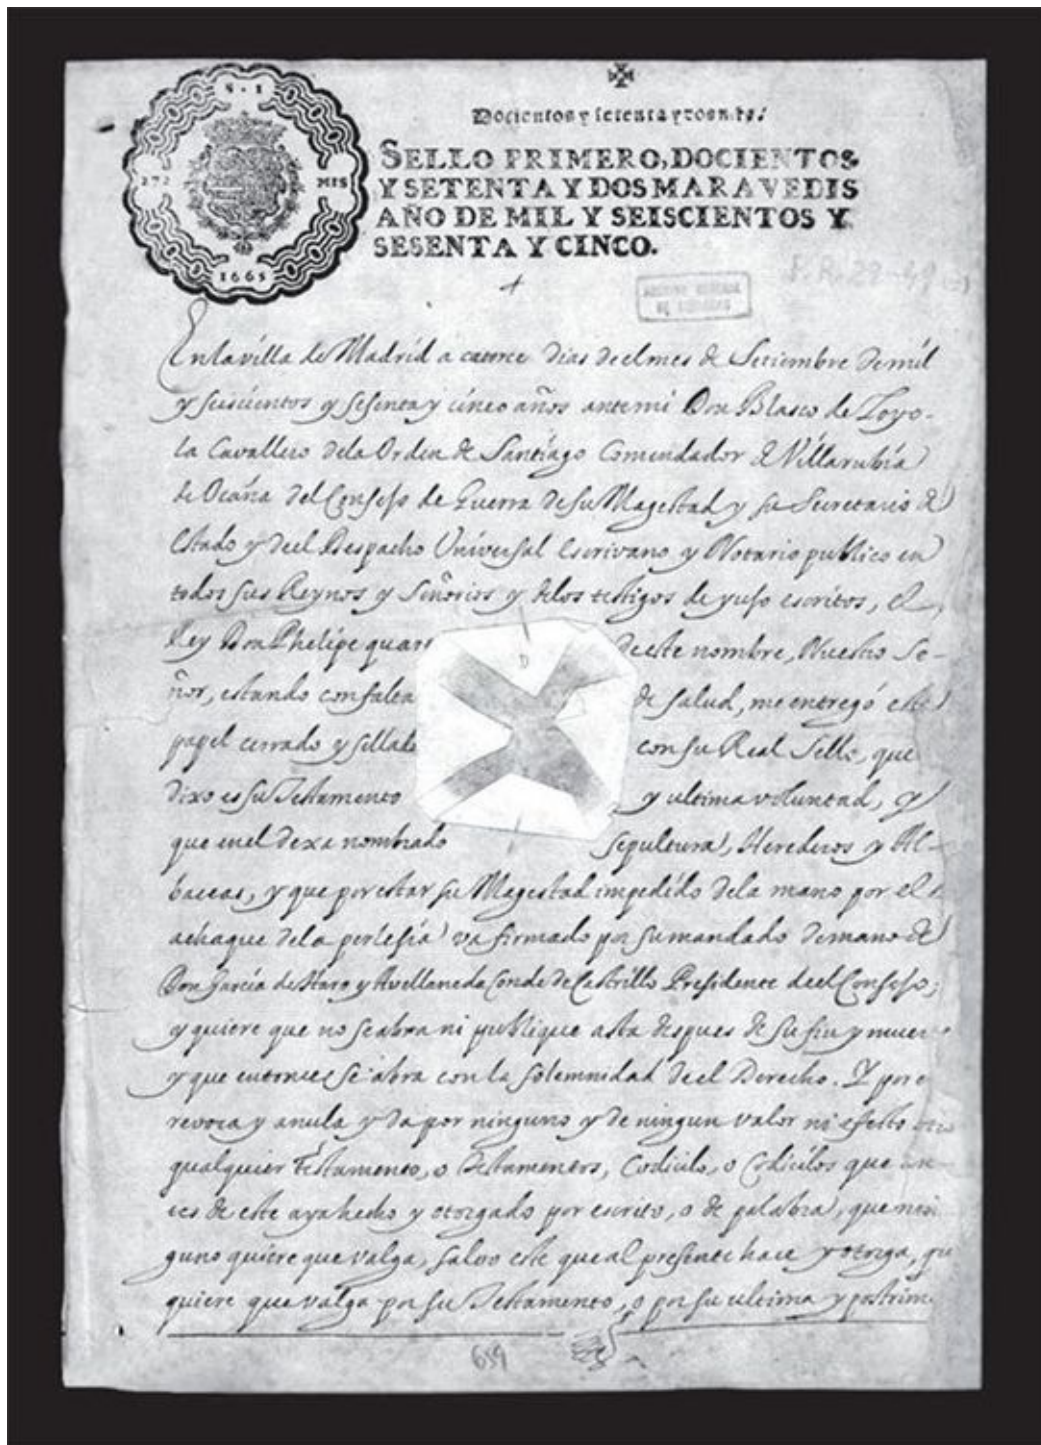 S. I
272
MIS
1665
Docientos y setenta y dos mrs.
SELLO PRIMERO, DOCIENTOS
Y SETENTA Y DOS MARAVEDIS
AÑO DE MIL Y SEISCIENTOS Y
SESENTA Y CINCO.
En la villa de Madrid a catorce dias deel mes de Setiembre de mil
y seiscientos y sesenta y cinco años ante mi Don Blasco de Loyo-
la Cavallero dela Orden de Santiago Comendador de Villarubia
de Ocaña del Consejo de Guerra de su Magestad y su Secretario de
Estado y deel Despacho Universal Escrivano y Notario publico en
todos sus Reynos y Señorios y delos testigos de yuso escritos, el
Rey Don Phelipe quar de este nombre, Nuestro Se-
ñor, estando con falta de salud, me entregó este
papel cerrado y sellado con su Real Sello, que
dixo es su Testamento y ultima voluntad, y
que en el dexa nombrado sepultura, Herederos y Al-
baceas, y que por estar su Magestad impedido dela mano por el
achaque dela perlesia va firmado por su mandado de mano de
Don Garcia de Haro y Avellaneda Conde de Castrillo Presidente deel Consejo;
y quiere que no se abra ni publique asta despues de su fin y muer
y que entonces se abra con la solemnidad deel Derecho. Y por e
revoca y anula y da por ninguno y de ningun valor ni efecto
qualquier Testamento, o Testamentos, Codicilo, o Codicilos que an-
tes de este aya hecho y otorgado por escrito, o de palabra, que nin
guno quiere que valga, salvo este que al presente hace y otorga, qu
quiere que valga por su Testamento, o por su ultima y postrim
659